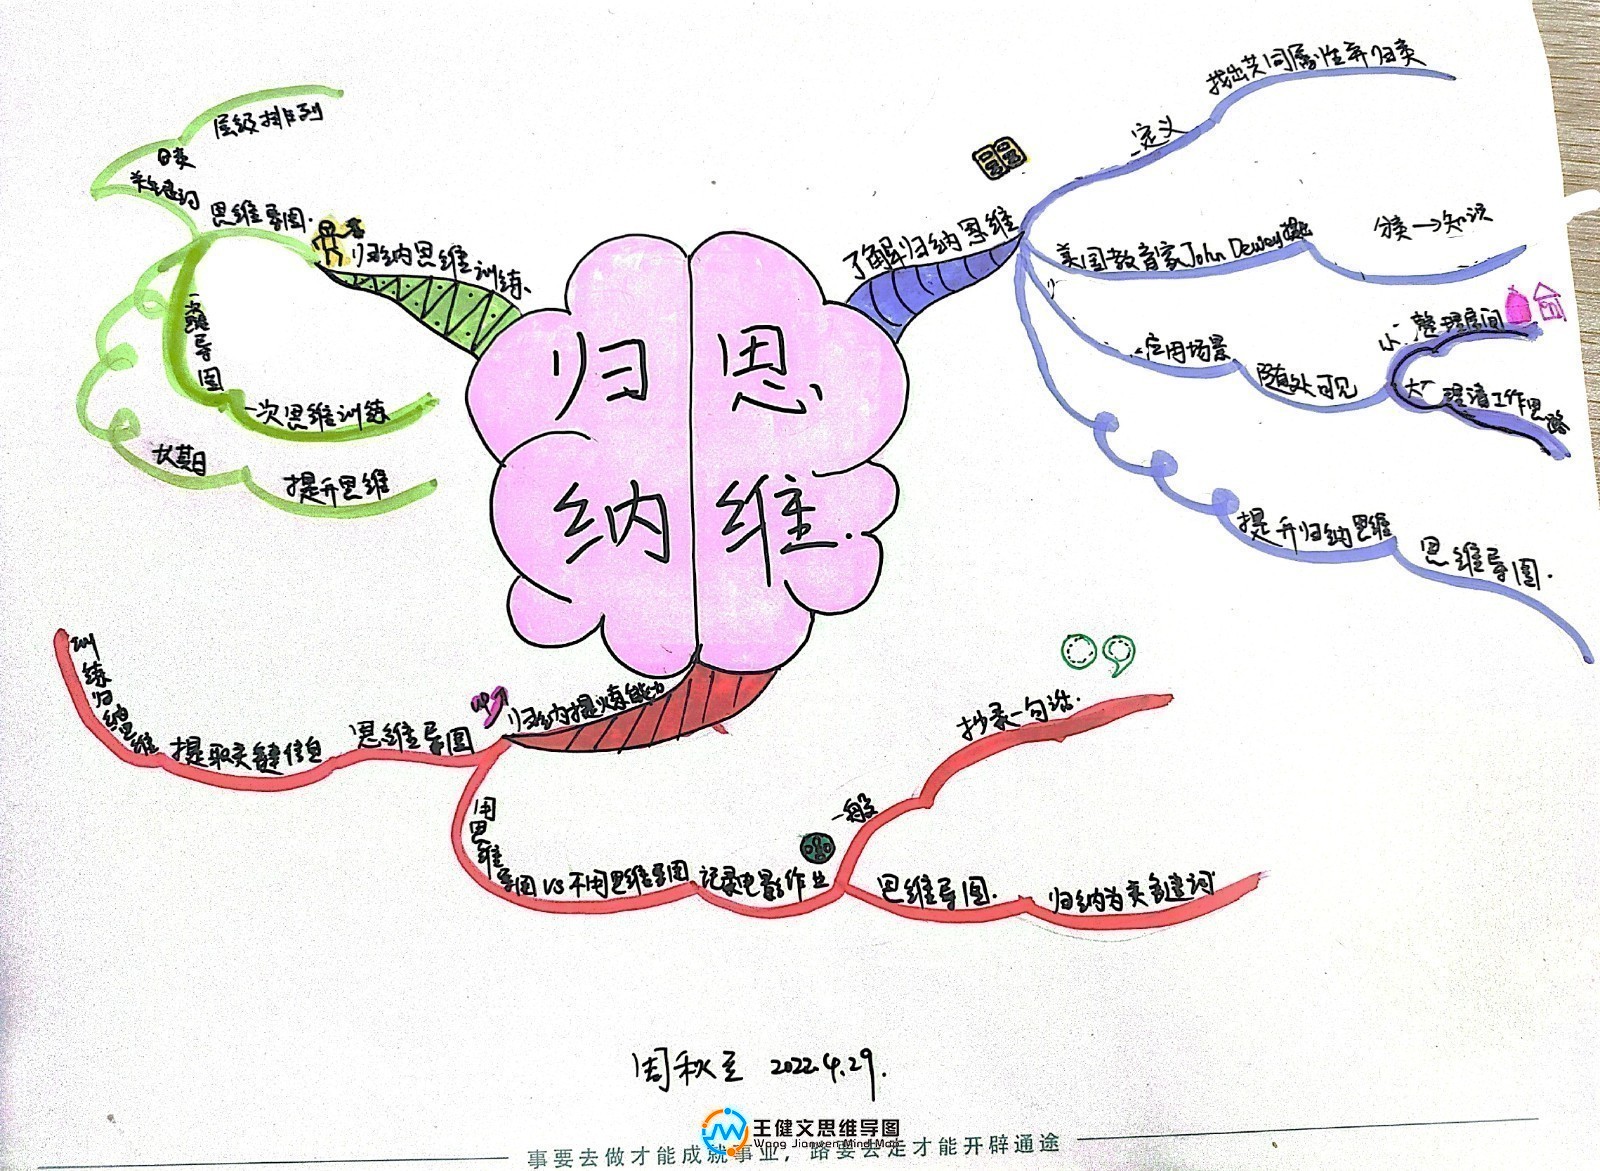 归
纳
思
维.
了解归纳思维
定义
找出共同属性并归类
美国教育家John Dewey提出
分类→知识
应用场景
随处可见
小:整理房间
大:理清工作思路
提升归纳思维
思维导图.
归纳提炼能力
思维导图
提取关键信息
训练归纳思维
用思维导图 vs 不用思维导图
记录电影作业
一般
抄录一句话.
思维导图.
归纳为关键词
归纳思维训练.
思维导图.
关键词
归类
层级排列
一次思维训练
长期
提升思维
2022.4.29.
王健文思维导图
Wang Jianwen Mind Map
事要去做才能成就事业，路要去走才能开辟通途